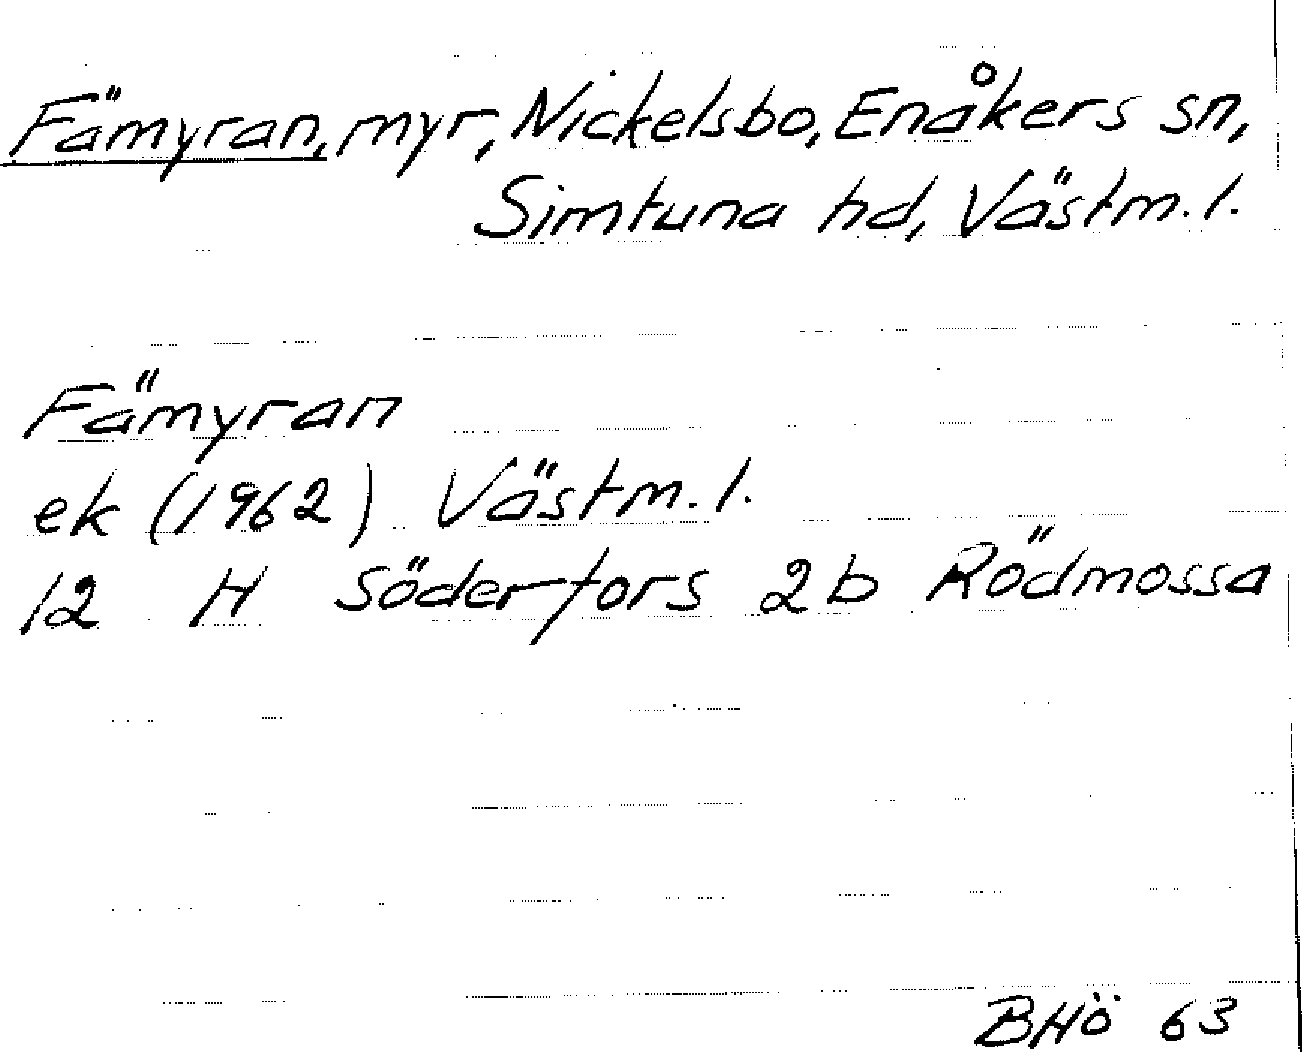 Fämyran, myr, Nickelsbo, Enåkers sn,
Simtuna hd, Västm. l.
Fämyran
ek (1962) Västm. l.
12 H Söderfors 2b Rödmossa
BHÖ 63